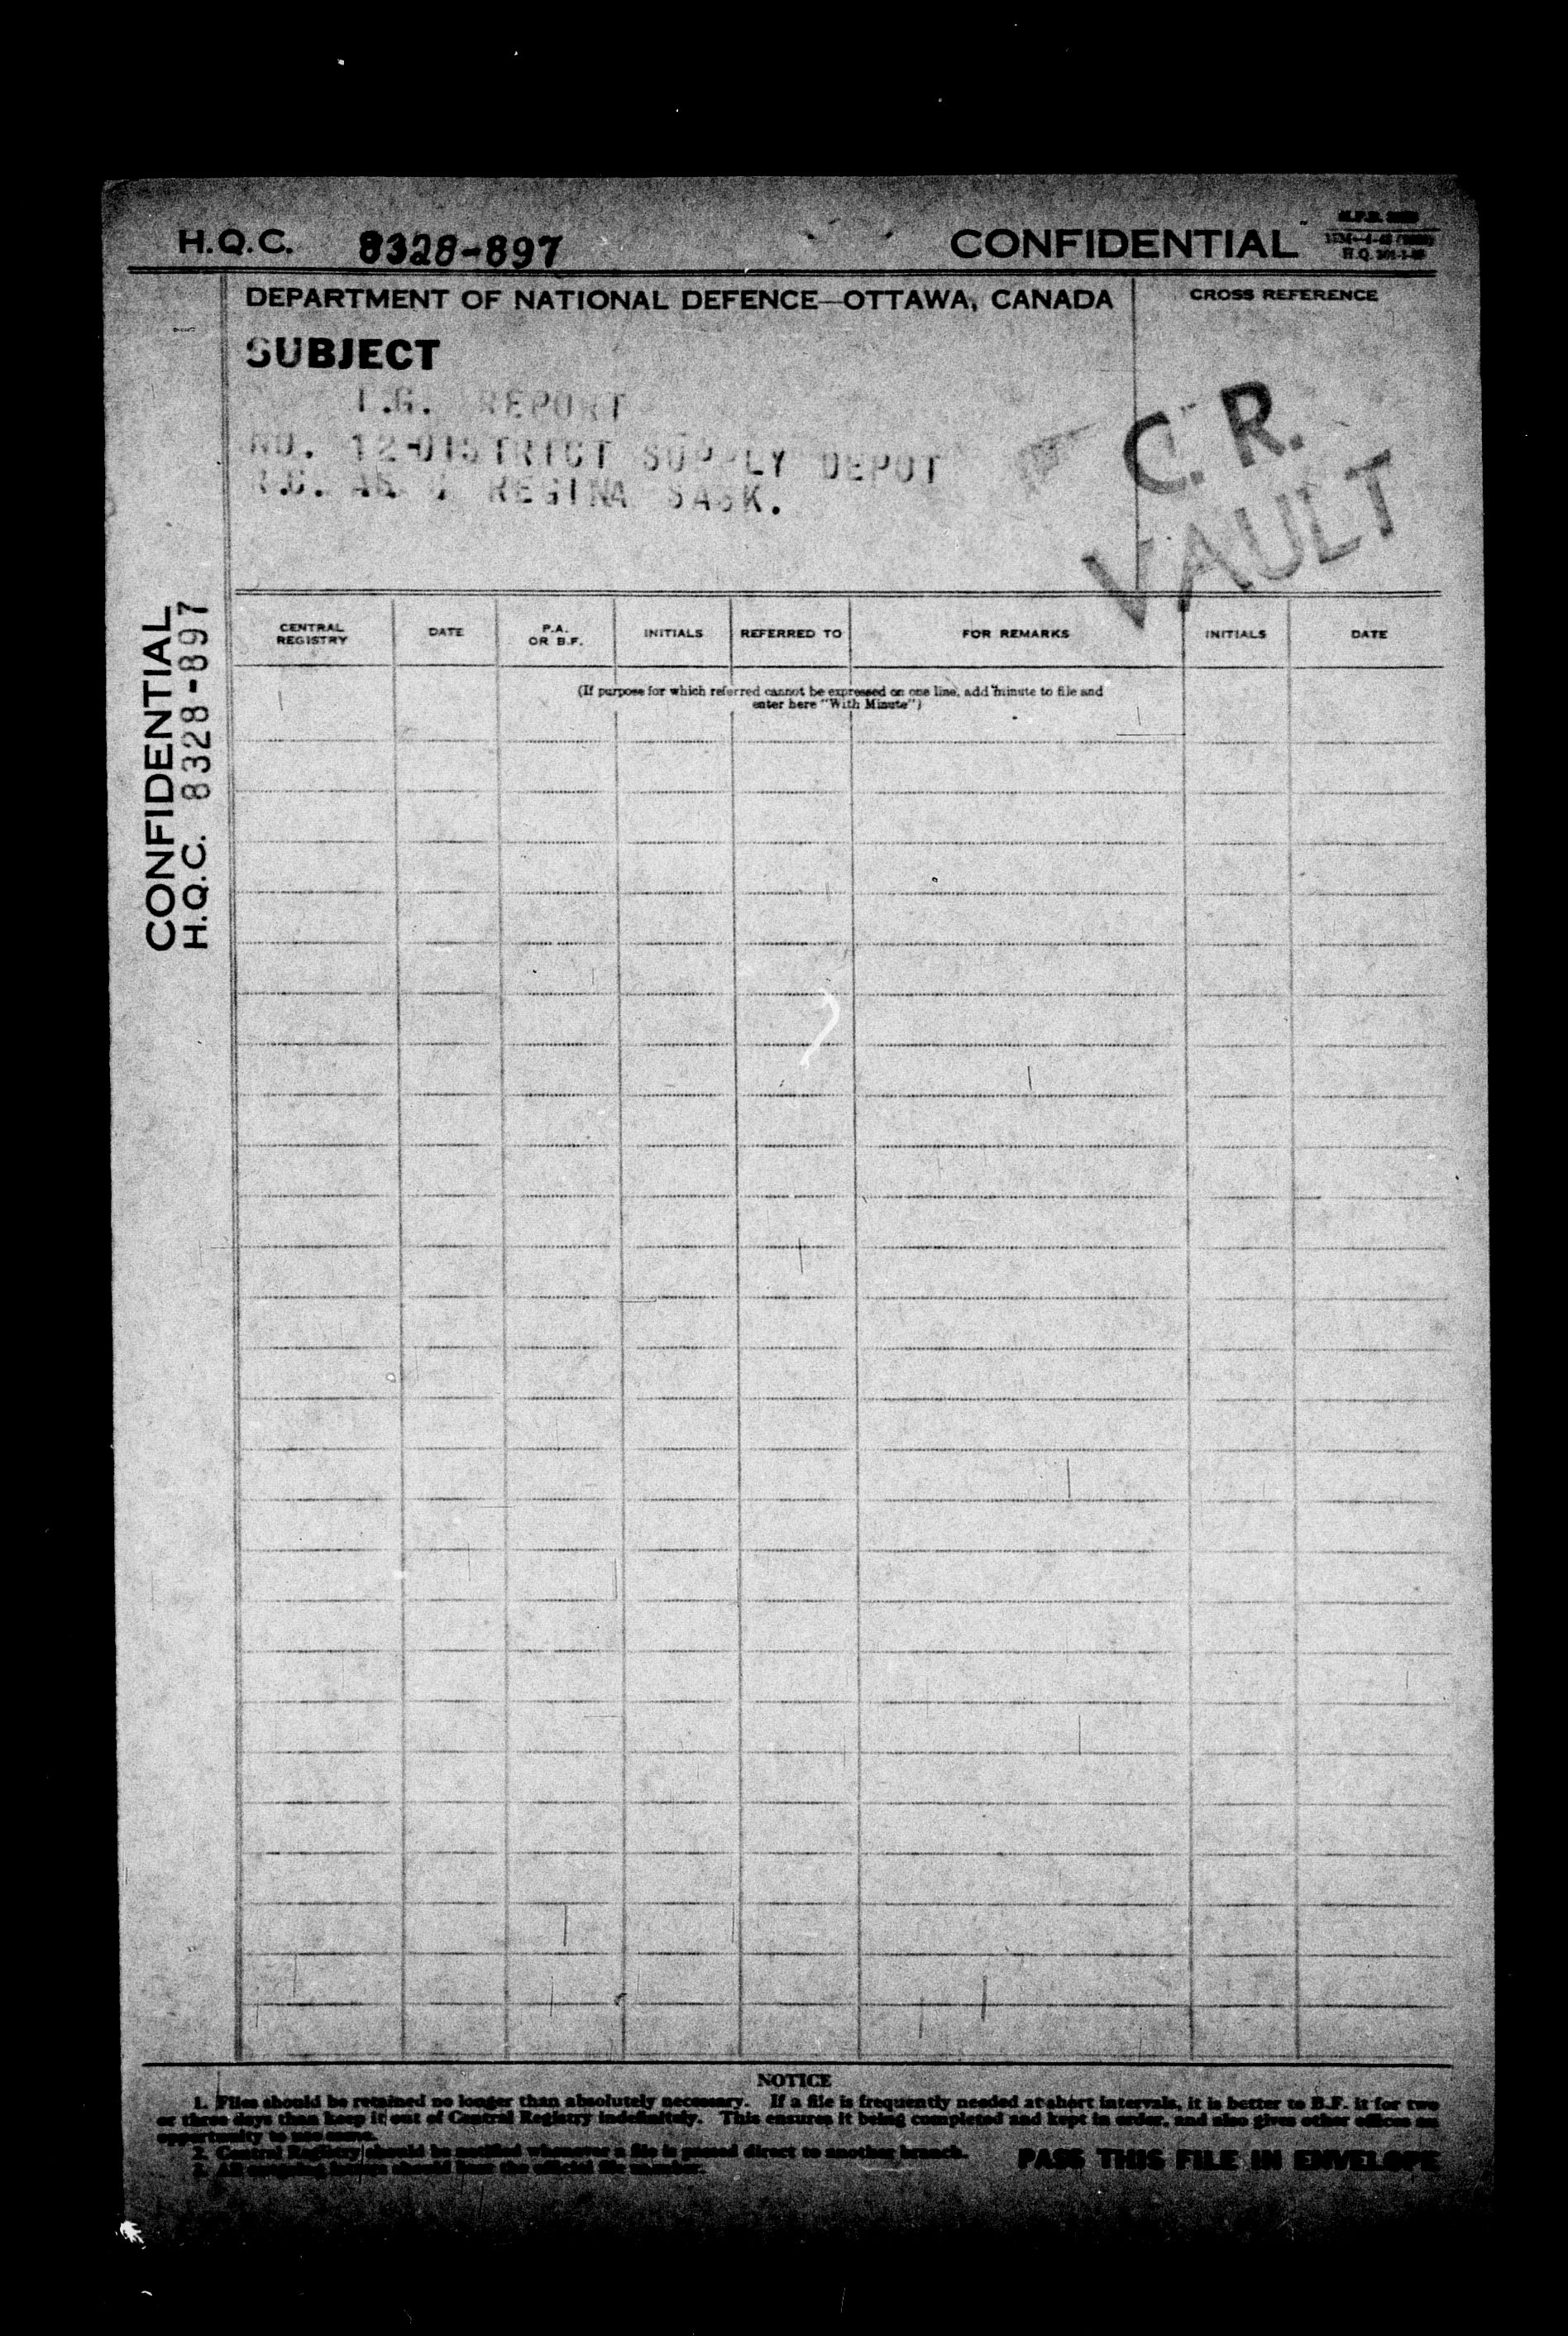 H.Q.C. 8328-897 CONFIDENTIAL
DEPARTMENT OF NATIONAL DEFENCE—OTTAWA, CANADA
CROSS REFERENCE
SUBJECT
I.G. REPORT
NO. 12-DISTRICT SUPPLY DEPOT
REGINA SASK.
C. R.
VAULT
CONFIDENTIAL
H.Q.C. 8328-897
CENTRAL REGISTRY DATE P.A. OR B.F. INITIALS REFERRED TO FOR REMARKS INITIALS DATE
(If purpose for which referred cannot be expressed on one line, add minute to file and
enter here "With Minute")
NOTICE
1. Files should be retained no longer than absolutely necessary. If a file is frequently needed at short intervals, it is better to B.F. it for two
or three days than keep it out of Central Registry indefinitely. This ensures it being completed and kept in order, and also gives other offices an
opportunity to
2. Central Registry should be notified whenever a file is passed direct to another branch.
3. All outgoing letters should bear the official file number.
PASS THIS FILE IN ENVELOPE